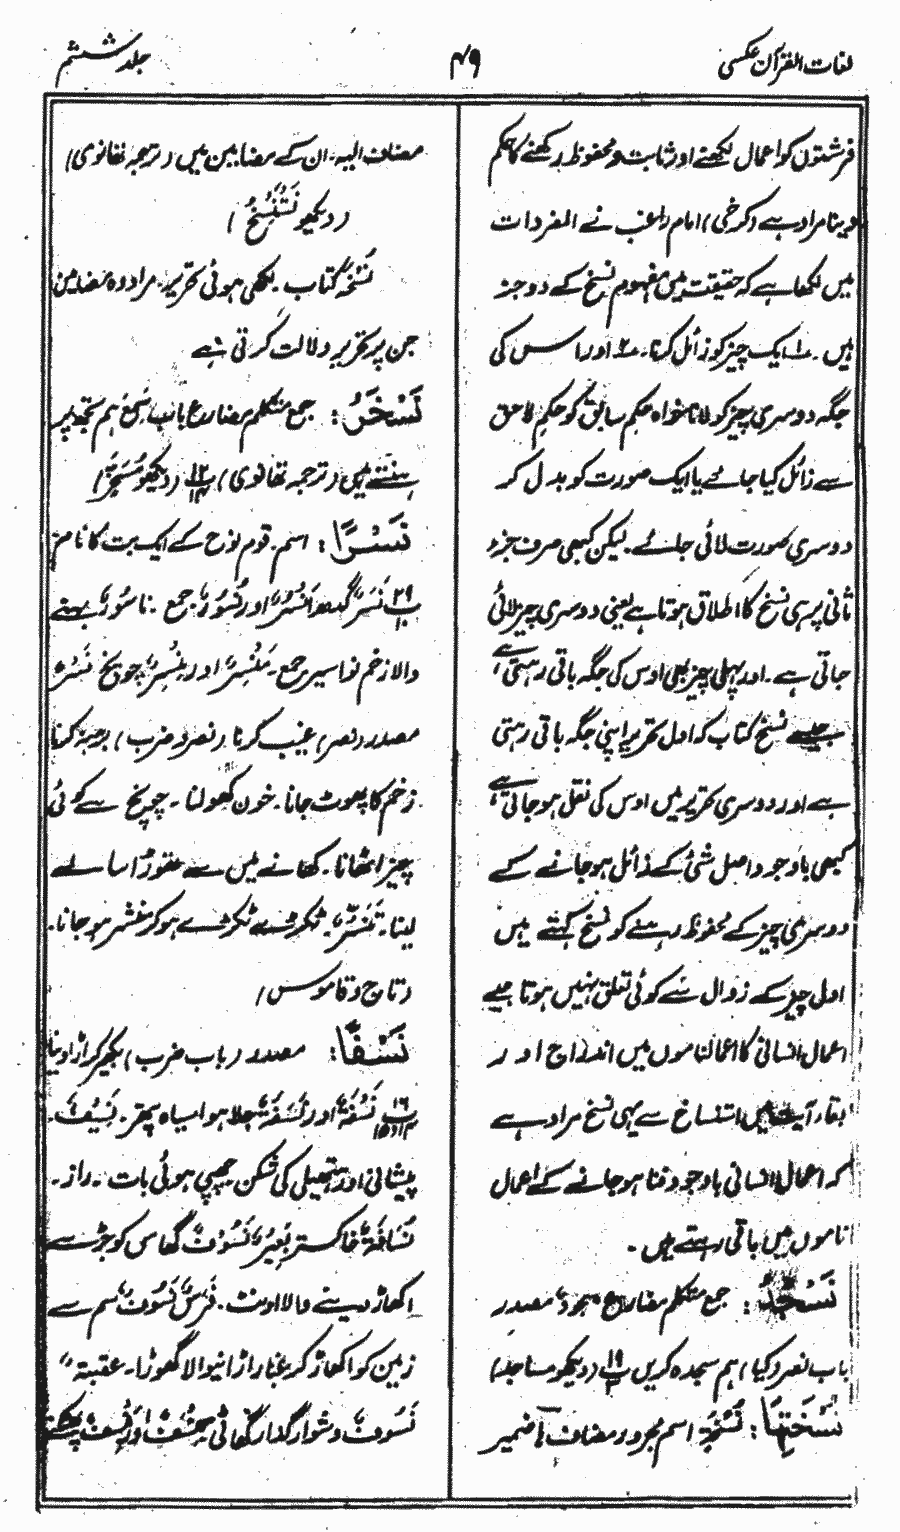 لغات القرآن عکسی
۴۹
جلد ششم
فرشتوں کو اعمال لکھنے اور ثابت و محفوظ رکھنے کا حکم
دینا مراد ہے (کرخی) امام راغب نے المفردات
میں لکھا ہے کہ حقیقت میں مفہوم نسخ کے دو جزء
ہیں ۔ ۱ ایک چیز کو زائل کرنا ۔ ۲ اور اس کی
جگہ دوسری چیز کو لانا خواہ حکم سابق کو حکم لاحق
سے زائل کیا جائے یا ایک صورت کو بدل کر
دوسری صورت لائی جائے ۔ لیکن کبھی صرف جزء
ثانی پر ہی نسخ کا اطلاق ہوتا ہے یعنی دوسری چیز لائی
جاتی ہے ۔ اور پہلی چیز بھی اوس کی جگہ باقی رہتی ہے
جیسے نسخ کتاب کہ اول تحریر اپنی جگہ باقی رہتی
ہے اور دوسری تحریر میں اوس کی نقل ہو جاتی ہے
کبھی باوجود اصل شئ کے زائل ہو جانے کے
دوسری چیز کے محفوظ رہنے کو نسخ کہتے ہیں
اول چیز کے زوال سے کوئی تعلق نہیں ہوتا جیسے
اعمال انسانی کا اعمالناموں میں اندراج اور
بقاء آیت میں استنساخ سے یہی نسخ مراد ہے
کہ اعمال انسانی باوجود فنا ہو جانے کے اعمال
ناموں میں باقی رہتے ہیں ۔
نَسْجُدُ : جمع متکلم مضارع سجود مصدر
باب نصر (کیا) ہم سجدہ کریں پ ۱۹ (دیکھو ساجدا)
نُسْخَتِهَا : نُسْخَةِ اسم مجرور مضاف ہا ضمیر
مضاف الیہ ۔ ان کے مضامین میں (ترجمہ تھانوی)
(دیکھو نَسْتَنْسِخُ)
نُسْخَہ کتاب ۔ لکھی ہوئی تحریر ۔ مراد وہ مضامین
جن پر تحریر دلالت کرتی ہے
نَسْخَرُ : جمع متکلم مضارع باب سَمِعَ ہم تجھ پر
ہنستے ہیں (ترجمہ تھانوی) پ ۱۲ (دیکھو
نَسْرًا : اسم ۔ قوم نوح کے ایک بت کا نام
پ ۲۹ نَسْر گدھ اَنْسُر اور نُسُوْر جمع ۔ ناسُور بہنے
والا زخم نواسیر جمع ۔ مَنْسِر اور مِنْسَر چونچ نَسْر
مصدر (نصر) عیب کرنا (نصر و ضرب)
زخم کا پھوٹ جانا ۔ خون کھولنا ۔ چونچ سے کوئی
چیز اٹھانا ۔ کھانے میں سے تھوڑا سا لے
لینا ۔ تَنَسُّر ٹکڑے ٹکڑے ہو کر منتشر ہو جانا ۔
(تاج و قاموس)
نَسْفًا : مصدر (باب ضرب) بکھیر کر اڑا دینا
پ ۱۶ نَسْفَة اور نَسَفَة جلا ہوا سیاہ پتھر ۔ نَسِیْف ۔
پیشانی اور ہتھیلی کی شکن چھپی ہوئی بات ۔ راز ۔
نُسَافَة خاکستر بَعِیْر نَسُوْف گھاس کو جڑ سے
اکھاڑ دینے والا اونٹ ۔ فَرَس نَسُوْف سم سے
زمین کو اکھاڑ کر غبار اڑانیوالا گھوڑا ۔ عقبة
نَسُوْف دشوار گذار گھاٹی